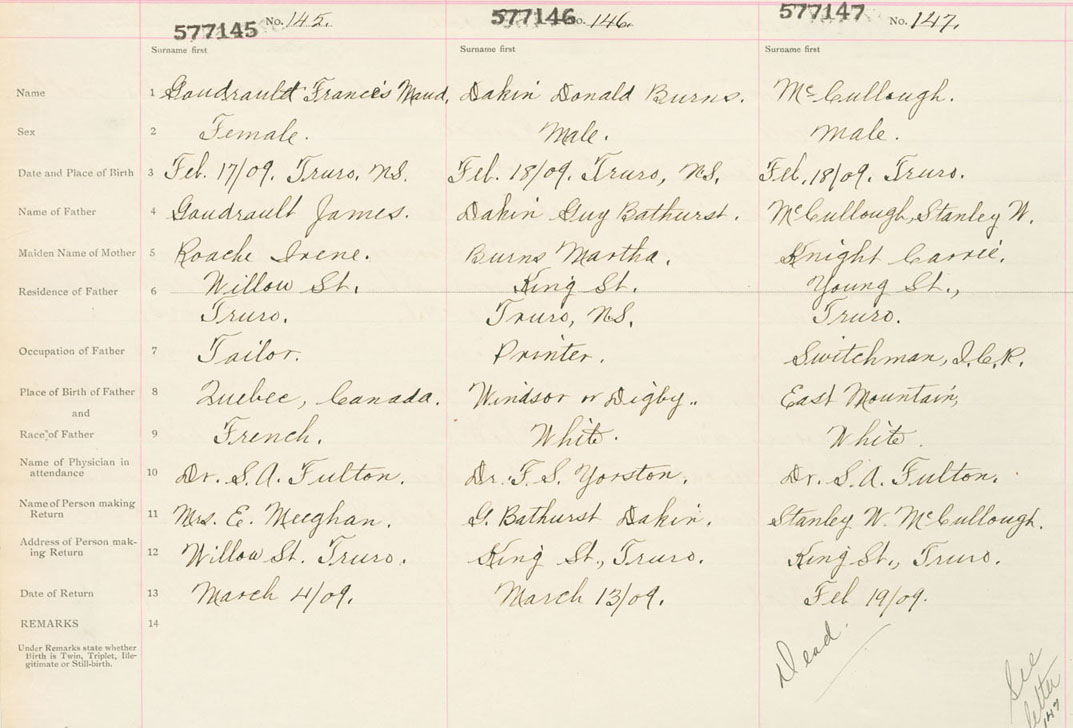 577145 No. 145. 577146 No. 146. 577147 No. 147.
Surname first Surname first Surname first
Name 1 Gaudrault Francis Maud. Dakin Donald Burns. McCullough.
Sex 2 Female. Male. Male.
Date and Place of Birth 3 Feb. 17/09. Truro, N.S. Feb. 18/09. Truro, N.S. Feb. 18/09. Truro.
Name of Father 4 Gaudrault James. Dakin Guy Bathurst. McCullough, Stanley W.
Maiden Name of Mother 5 Roache Irene. Burns Martha. Knight Carrie.
Residence of Father 6 Willow St. King St. Young St.,
Truro. Truro, N.S. Truro.
Occupation of Father 7 Tailor. Printer. Switchman, I.C.R.
Place of Birth of Father 8 Quebec, Canada. Windsor or Digby. East Mountain,
and
Race of Father 9 French. White. White.
Name of Physician in
attendance 10 Dr. S. A. Fulton. Dr. F. S. Yorston. Dr. S. A. Fulton.
Name of Person making
Return 11 Mrs. E. Meeghan. G. Bathurst Dakin. Stanley W. McCullough.
Address of Person mak-
ing Return 12 Willow St. Truro. King St., Truro. King St., Truro.
Date of Return 13 March 4/09. March 13/09. Feb 19/09.
REMARKS 14
Under Remarks state whether
Birth is Twin, Triplet, Ille-
gitimate or Still-birth.
Dead.
See
letter
147